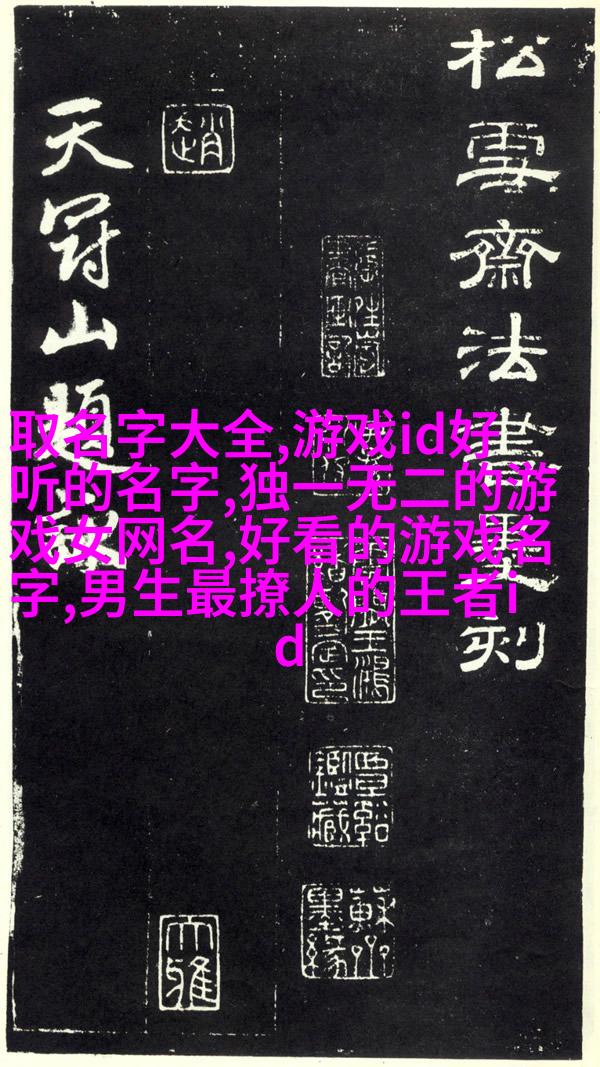 松雪齋法書墨刻
天冠山題
趙
覃谿鑑藏
大雅
取名字大全,游戏id好
听的名字,独一无二的游
戏女网名,好看的游戏名
字,男生最撩人的王者i
d